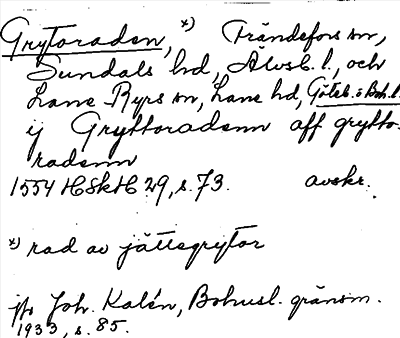 Grytoraden, x) Frändefors sn,
Sundals hd, Älvsb. l., och
Lane Ryrs sn, Lane hd, Göteb. o Boh. l.
ij Gryttoradenn aff grytto-
radenn
1554 HSkH 29, s. 73. avskr.
x) rad av jättegrytor
jfr Joh. Kalén, Bohusl. gränsm.
1933, s. 85.